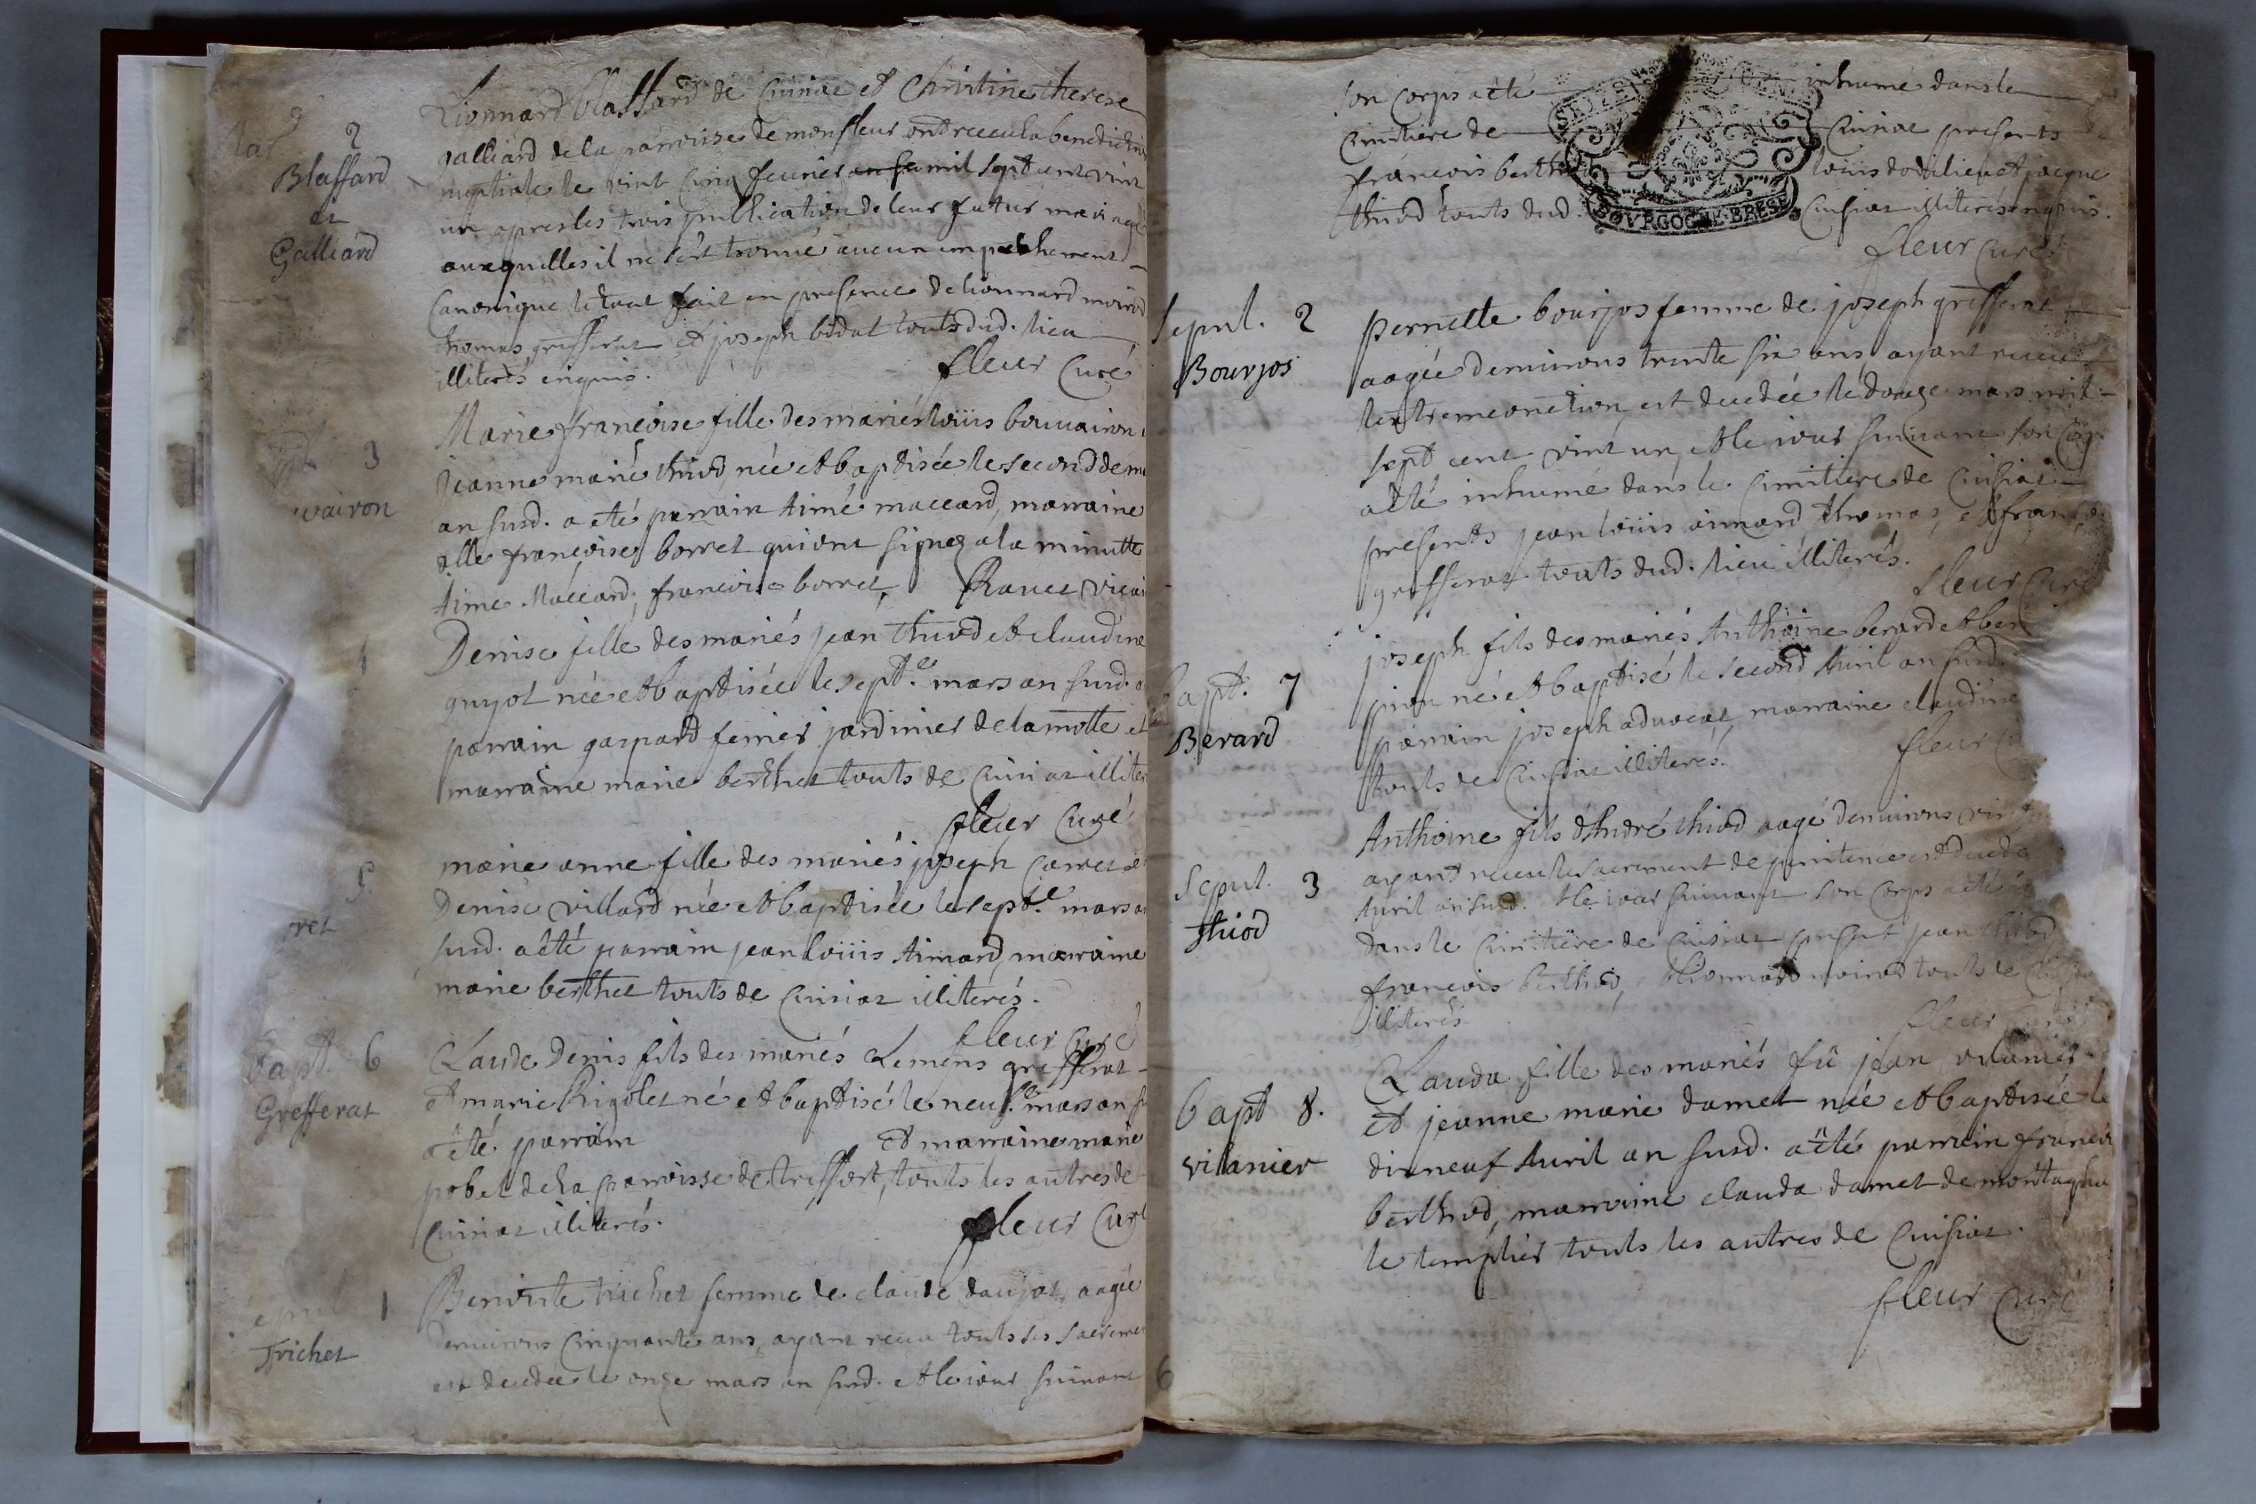 2
Blaffard
et
Galliard
Lionnard blaffard de Cuisiat et Christine therese
galliard de la parroisse de monfleur ont receu la benediction
nuptiale le vint cinq feurier an su mil sept cent vint
un apres les trois publication de leur futur mariage
auxquelles il ne s'est trouué aucun impechement
Canonique le tout fait en presence de lionnard moirod
thomas grefferat et joseph bidat touts dud. lieu
illiterés enquis.
fleur Curé
3
uairon
Marie françoise fille des mariés louis bouuairon
jeanne marie thiod née et baptisée le second de ma
an susd. a eté parrain Aimé maccard, marraine
françoise borret qui ont signez a la minutte
Aime Maccard, francoise borret, Rauet vicai
Denise fille des mariés jean thiod et claudine
guyot née et baptisée le sept.e mars an susd. a
parrain gaspard ferrier jardinier de la motte et
marraine marie berthet touts de Cuisiat illiter
fleur Curé
5
ret
marie anne fille des mariés joseph Carret et
Denise villard née et baptisée le sept.e mars an
susd. a eté parrain jean louis Aimard, marraine
marie berthet touts de Cuisiat illiterés.
fleur Curé
bapt. 6
Grefferat
Claude Denis fils des mariés Clemens grefferat
et marie Rigolet né et baptisé le neuf.e mars an su
a eté parrain et marraine marie
pobel de la parroisse de treffort, touts les autres de
Cuisiat illiterés.
fleur Curé
sepul 1
Trichet
Benoite trichet femme de claude daujat, aagée
d'enuirons Cinquante ans, ayant receu touts ses Sacremen
est decedée le onze mars an susd. et le iour suiuant
son Corps a eté inhumé dans le
Cimitiere de Cuisiat presents
françois berthod louis dodulieu et jacque
thiod touts dud. Cuisiat illiterés enquis.
BOVRGOGNE BRESSE
fleur Curé
sepul. 2
Bourjos
pernette bourjos femme de joseph grefferat
aagée d'enuirons trente six ans ayant receu
l'extremeonction est decedée le douze mars mil
sept cent vint un, et le iour suiuant son Corp
a eté inhumé dans le Cimitiere de Cuisiat
presents jean louis aimard thomas, et françois
grefferat touts dud. lieu illiterés.
fleur Curé
bapt. 7
Berard
joseph fils des mariés Anthoine berard et ben
pion né et baptisé le second Auril an susd.
parrain joseph aduocat, marraine claudine
touts de Cuisiat illiterés.
fleur Cu
Sepul. 3
thiod
Anthoine fils d'André thiod aagé d'enuirons vin
ayant receu le sacrement de penitence est deceda
Auril an susd. et le iour suiuant son Corps a eté
dans le Cimitiere de Cuisiat present jean thiod
françois berthod, et lionnard moirod touts de Cuisia
illiterés
fleur Curé
bapt 8.
vilanier
Clauda fille des mariés fû jean vilanier
et jeanne marie damet née et baptisée le
dixneuf Auril an susd. a eté parrain françois
berthod, marraine clauda damet de montagna
le templier touts les autres de Cuisiat.
fleur Curé